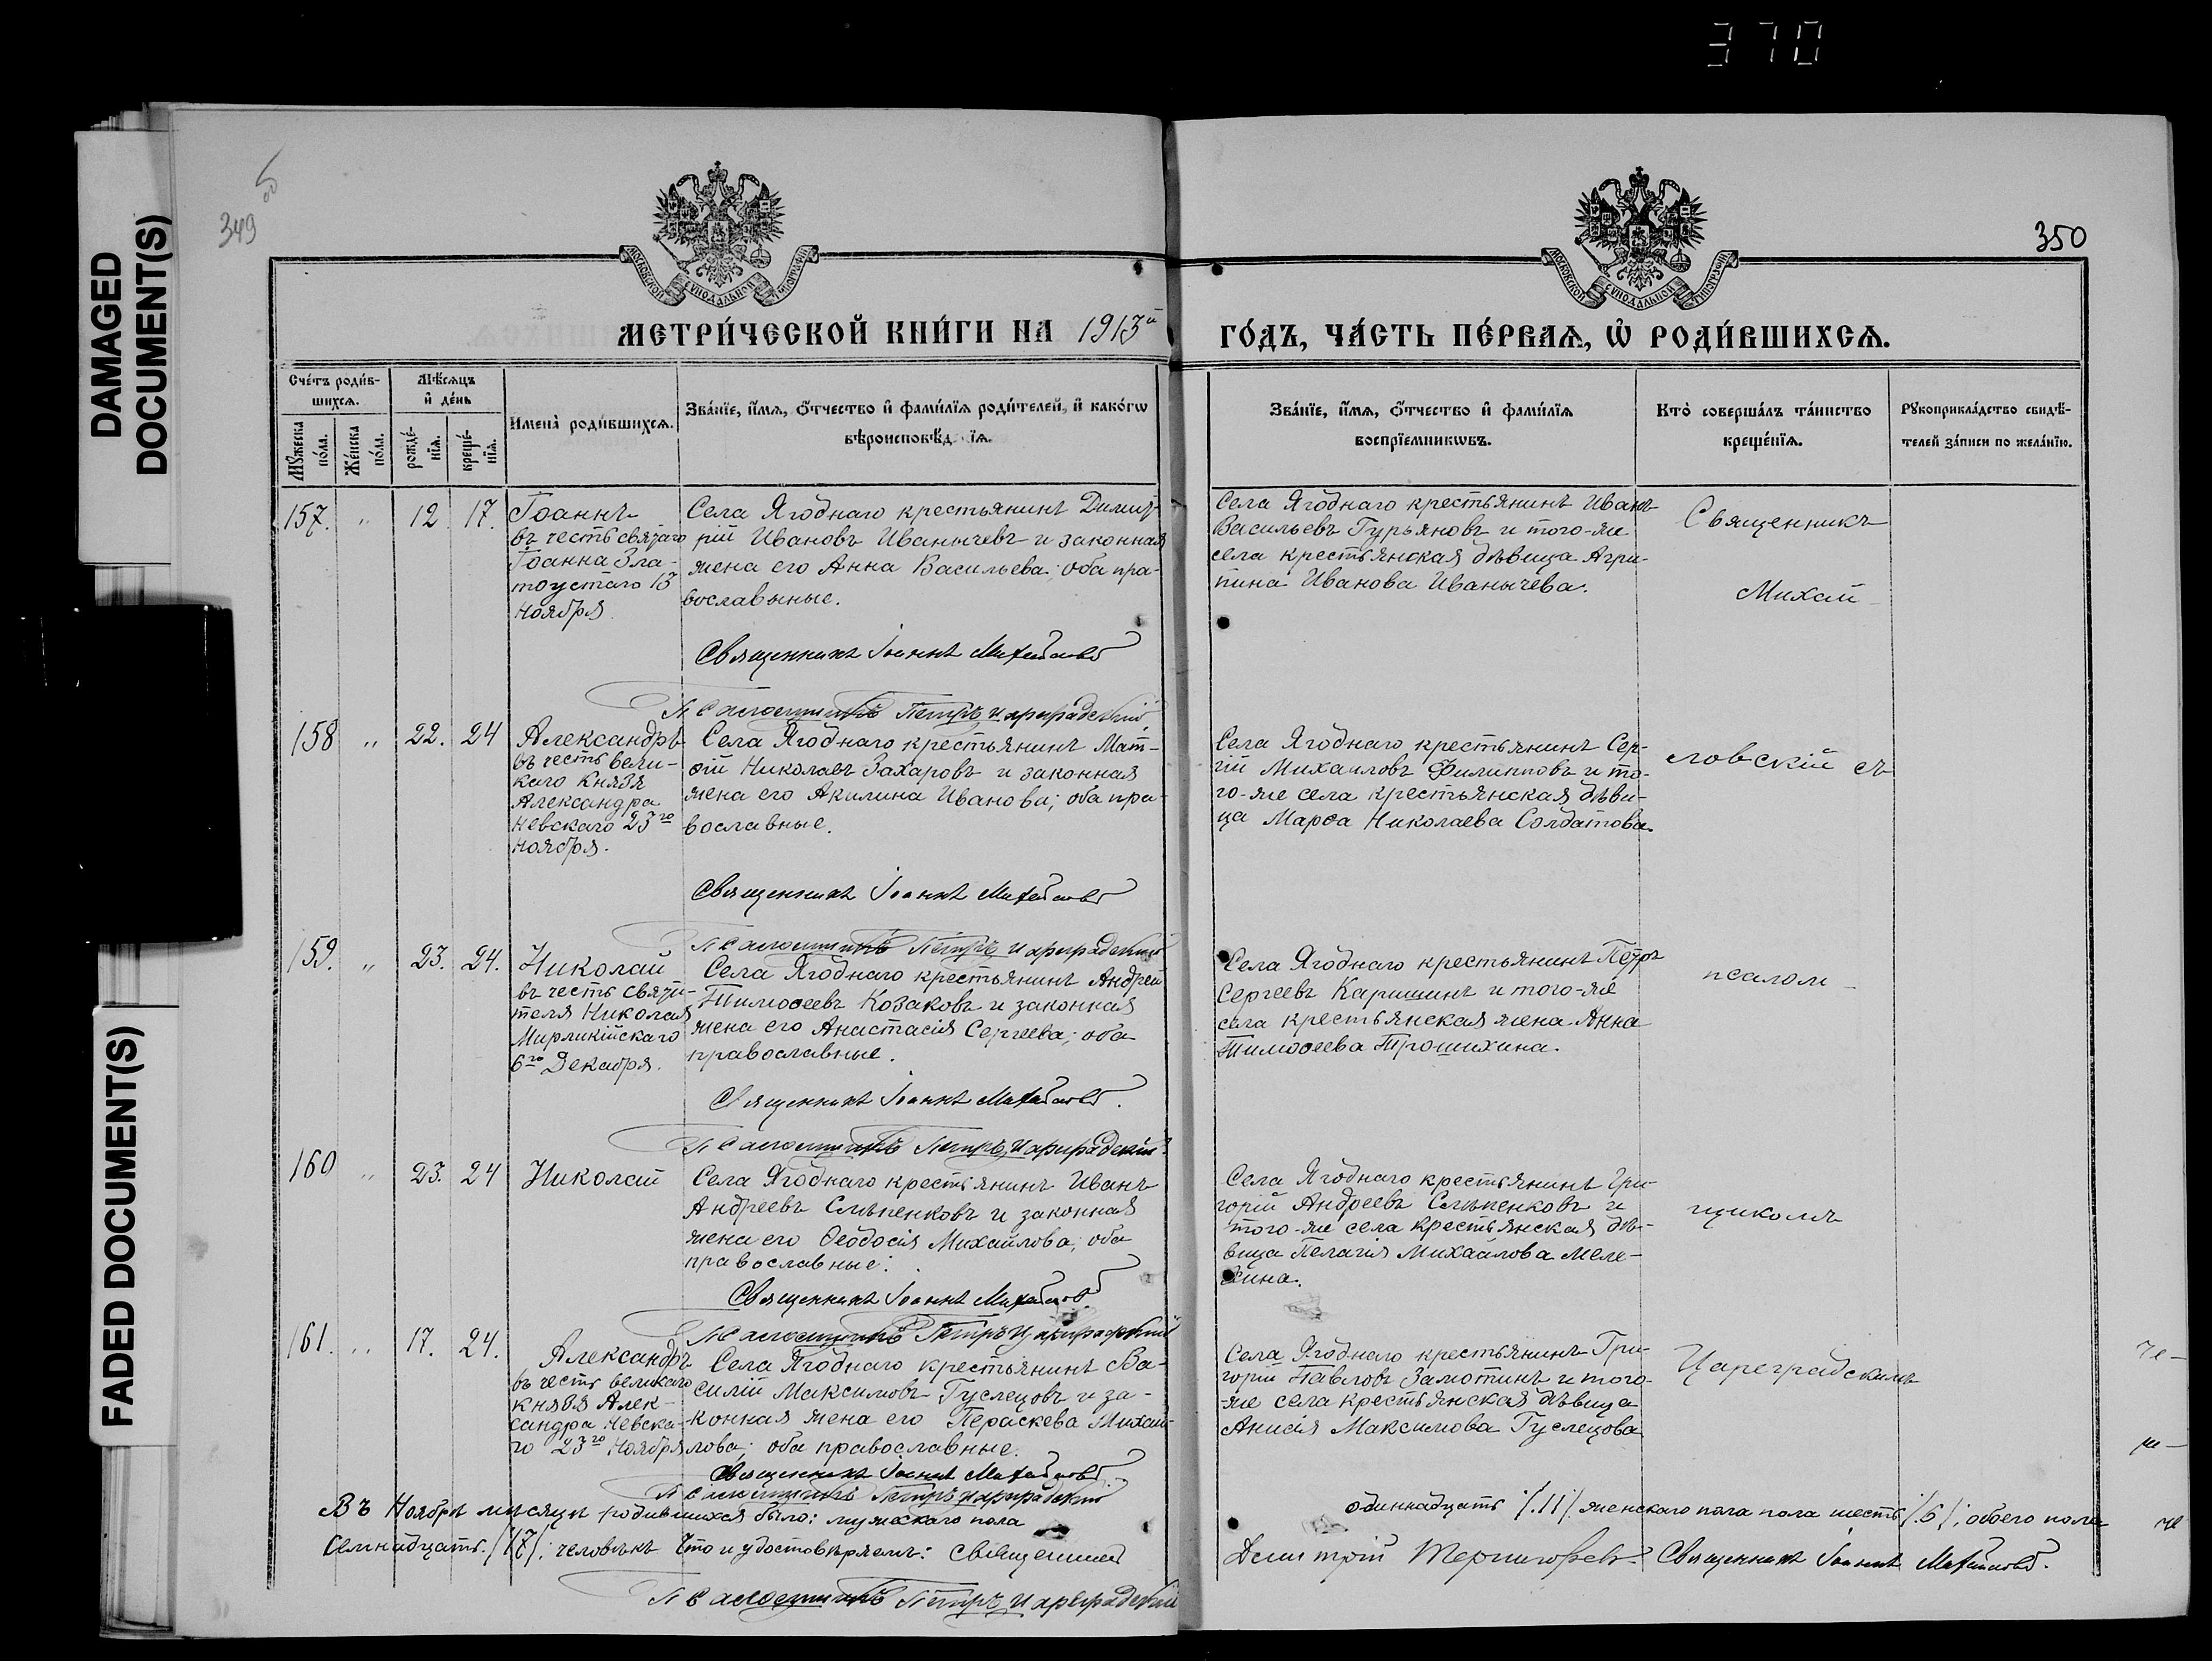 370
DAMAGED
DOCUMENT(S)
FADED DOCUMENT(S)
349 об
350
МОСКОВСКОЙ СѴНОДАЛЬНОЙ ТИПОГРАФІИ
МОСКОВСКОЙ СѴНОДАЛЬНОЙ ТИПОГРАФІИ
МЕТРИ́ЧЕСКОЙ КНИ́ГИ НА 1913й
ГО́ДЪ, ЧА́СТЬ ПЕ́РВАѦ, Ѽ РОДИ́ВШИХСѦ.
Сче́тъ роди́в-
шихсѧ.
Мꙋ́жеска
по́ла.
Же́нска
по́ла.
Мѣ́сѧцъ
и҆ де́нь
рожде́-
нїѧ.
креще́-
нїѧ.
Имена̀ роди́вшихсѧ.
Зва́нїе, и҆́мѧ, ѻ҆́тчество и҆ фами́лїѧ роди́телей, и҆ како́гѡ
вѣроисповѣ́д їѧ.
Зва́нїе, и҆́мѧ, ѻ҆́тчество и҆ фами́лїѧ
воспрїе́мникѡвъ.
Кто̀ соверша́лъ та́инство
креще́нїѧ.
Рꙋкоприкла́дство свидѣ́-
телей за́писи по жела́нїю.
157. " 12. 17.
Іоаннъ
въ честь святаго
Іоанна Зла-
тоустаго 13
ноября.
Села Ягоднаго крестьянинъ Димит-
рій Ивановъ Иванычевъ и законная
жена его Анна Васильева; оба пра-
вославыные.
Священникъ Іоаннъ Михайловъ
Псаломщикъ Петръ Цареградскій
Села Ягоднаго крестьянинъ Иванъ
Васильевъ Гурьяновъ и того-же
села крестьянская дѣвица Агри-
пина Иванова Иванычева.
Священникъ
Михай-
158 " 22. 24
Александръ
въ честь вели-
каго Князя
Александра
Невскаго 23го
ноября.
Села Ягоднаго крестьянинъ Мат-
ѳій Николаевъ Захаровъ и законная
жена его Акилина Иванова; оба пра-
вославные.
Священникъ Іоаннъ Михайловъ
Псаломщикъ Петръ Цареградскій
Села Ягоднаго крестьянинъ Сер-
гій Михаиловъ Филипповъ и то-
го-же села крестьянская дѣви-
ца Марѳа Николаева Солдатова.
ловскій съ
159. " 23. 24.
Николай
въ честь святи-
теля Николая
Мирликійскаго
6го Декабря.
Села Ягоднаго крестьянинъ Андрей
Тимоѳеевъ Козаковъ и законная
жена его Анастасія Сергеева; оба
православные.
Священникъ Іоаннъ Михайловъ.
Псаломщикъ Петръ Цареградскій
Села Ягоднаго крестьянинъ Петръ
Сергеевъ Каришинъ и того-же
села крестьянская жена Анна
Тимоѳеева Трошихина.
псалом-
160 " 23. 24
Николай
Села Ягоднаго крестьянинъ Иванъ
Андреевъ Слѣпенковъ и законная
жена его Ѳеодосія Михайлова; оба
православные.
Священникъ Іоаннъ Михайловъ
Псаломщикъ Петръ Цареградскій
Села Ягоднаго крестьянинъ Гри-
горій Андреевъ Слѣпенковъ и
того-же села крестьянская дѣ-
вица Пелагія Михайлова Меле-
хина.
щикомъ
161. " 17. 24.
Александръ
въ честь великаго
князя Алек-
сандра Невска-
го 23го ноября
Села Ягоднаго крестьянинъ Ва-
силій Максимовъ Гуслецовъ и за-
конная жена его Параскева Михай-
лова; оба православные.
Священникъ Іоаннъ Михайловъ
Псаломщикъ Петръ Цареградскій
Села Ягоднаго крестьянинъ Гри-
горій Павловъ Замотинъ и того-
же села крестьянская дѣвица
Анисія Максимова Гуслецова
Цареградскимъ
Въ Ноябрѣ мѣсяцѣ родившихся было: мужескаго пола
одиннадцать /.11/. женскаго пола пола шесть /.6/; обоего пола
Семнадцать /17/. человѣкъ Что и удостовѣряемъ: Священникъ
Димитрій Терпигоревъ. Священникъ Іоаннъ Михайловъ.
Псаломщикъ Петръ Цареградскій